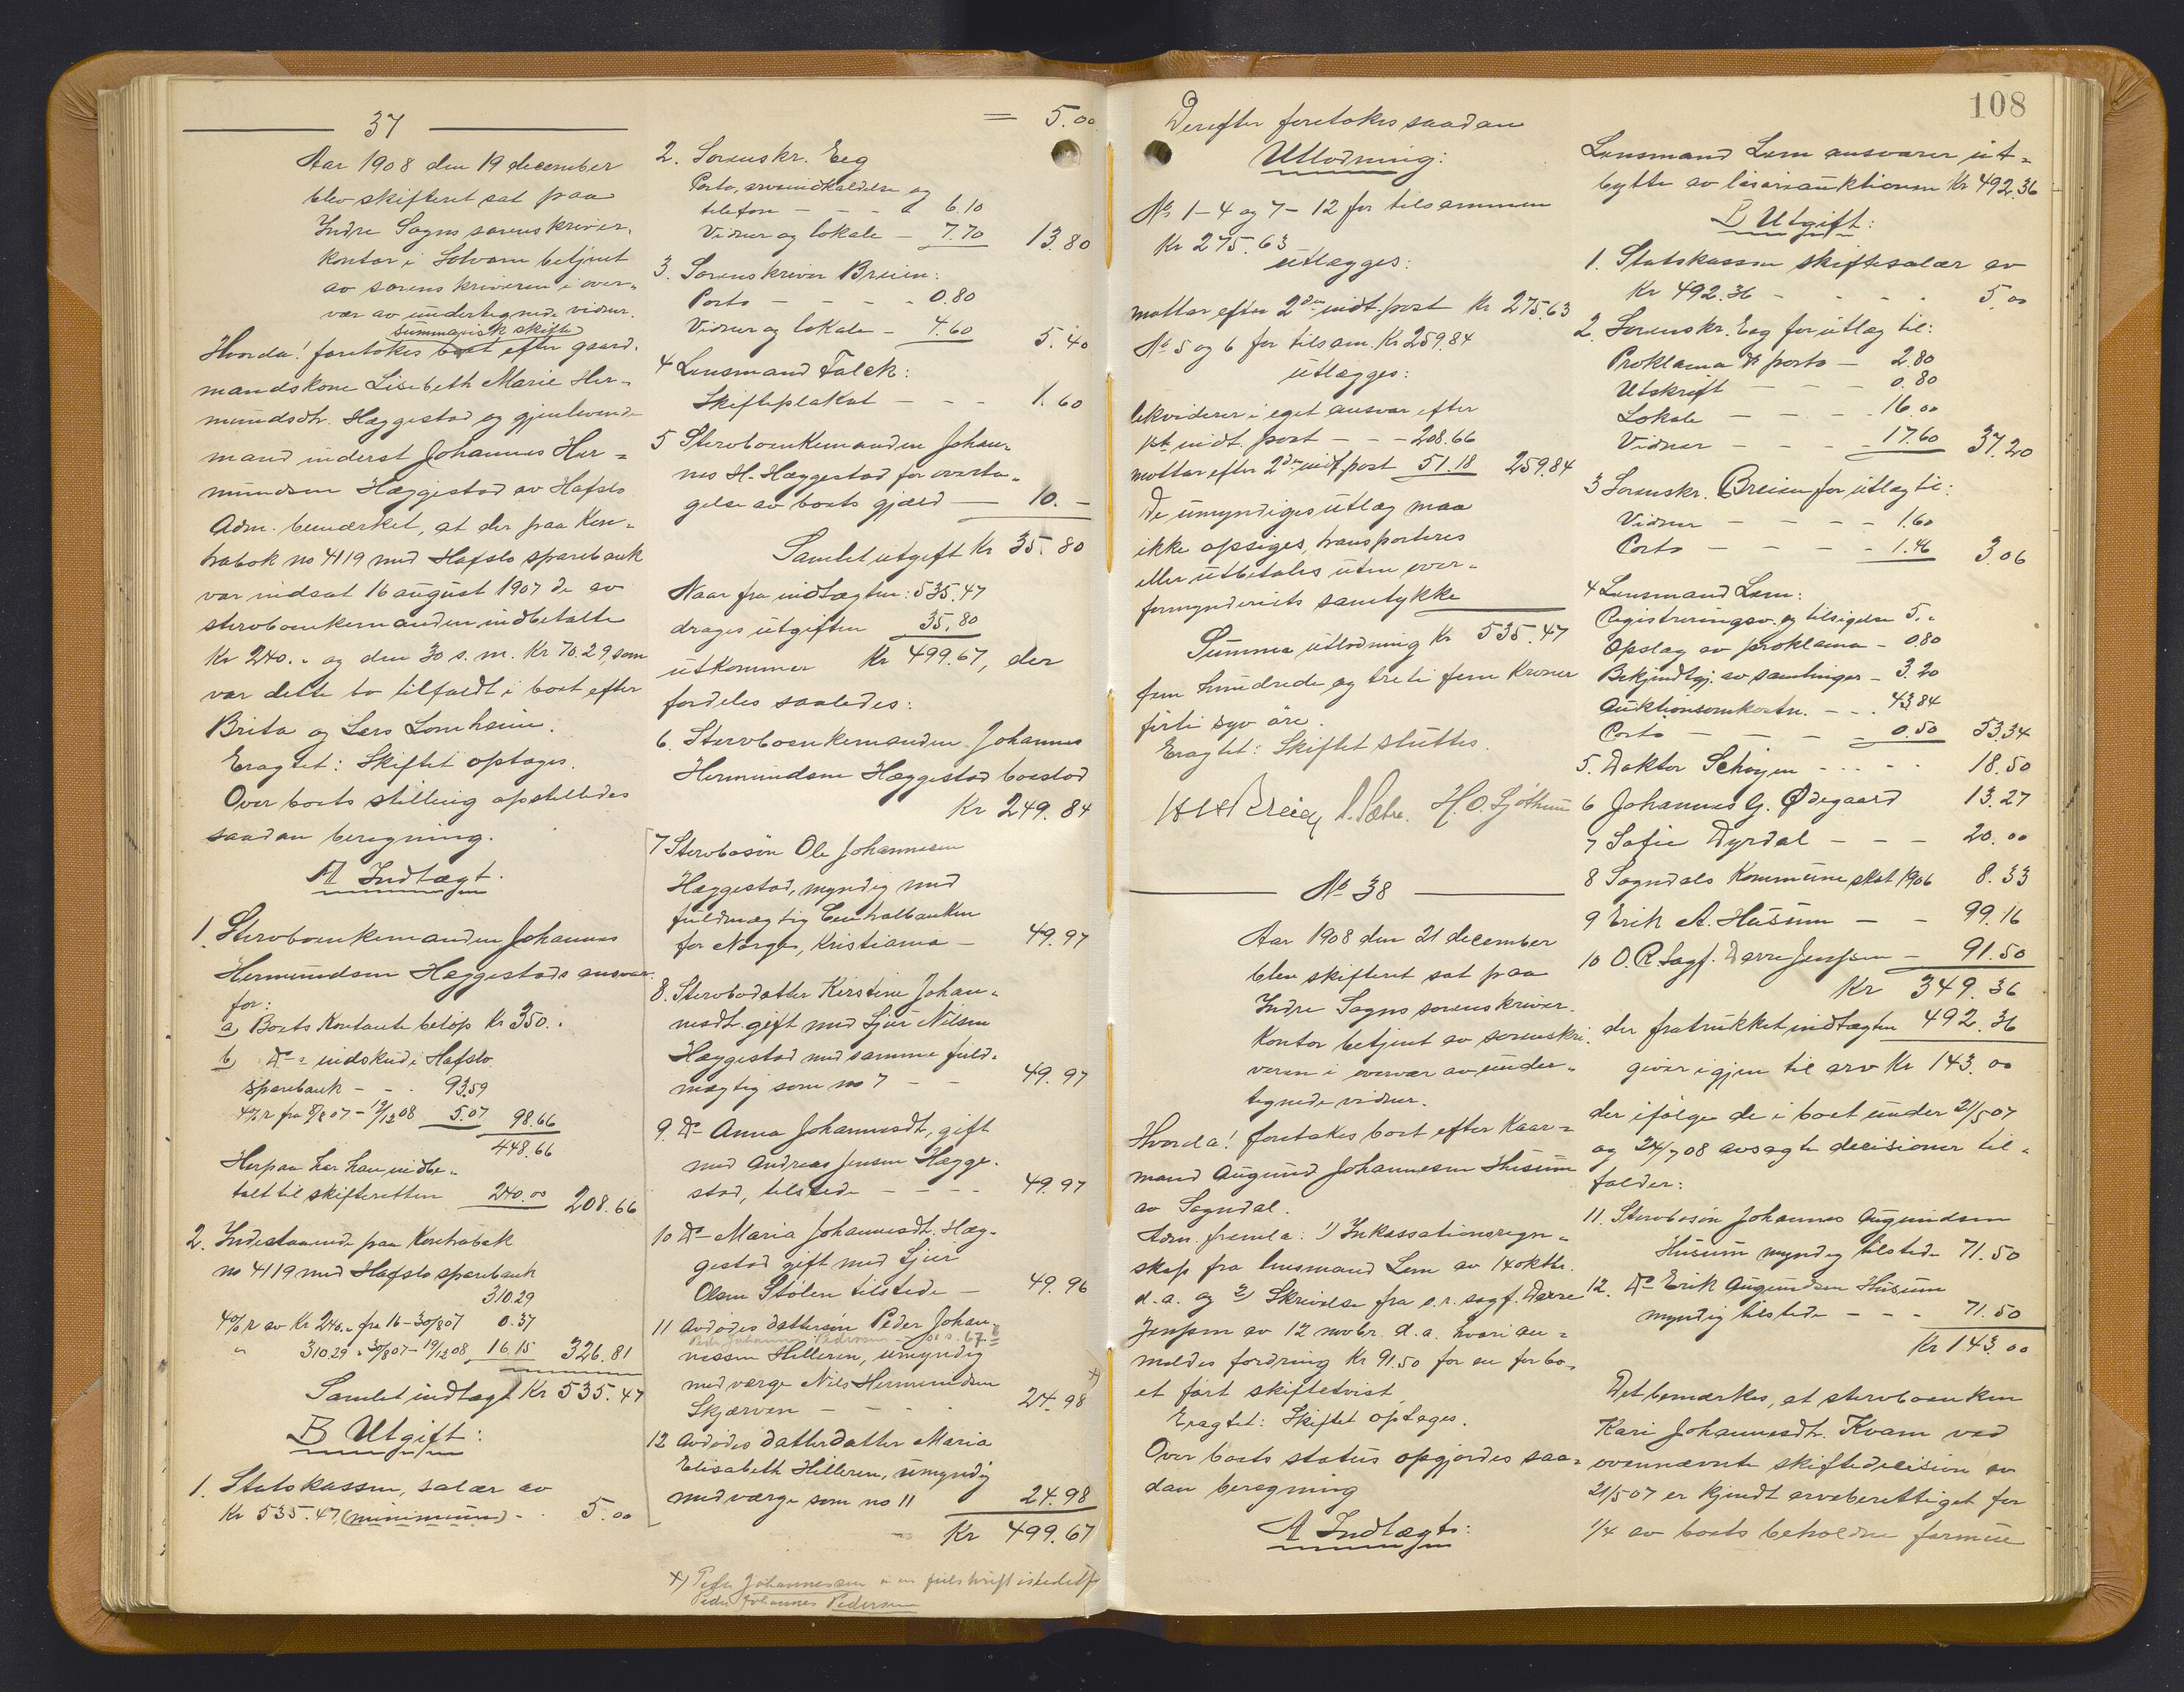 37
Aar 1908 den 19 december
blev skifteret sat paa
Indre Sogns sorenskriver-
kontor i Solvorn betjent
av sorenskriveren i over-
vær av undertegnede vidner.
summarisk skifte
Hvorda! foretokes boet efter gaard-
mandskone Lisebeth Marie Her-
mundsdtr. Hæggestad og gjenlevende
mand inderst Johannes Her-
mundsen Hæggestad av Hafslo
Adm. bemærket, at der paa Kon-
trabok no 4119 med Hafslo sparebank
var indsat 16 august 1907 de av
stervboenkemanden indbetalte
Kr 240.- og den 30 s. m. Kr 70.29, som
var dette bo tilfaldt i boet efter
Brita og Lars Lomheim.
Eragtet: Skiftet optages.
Over boets stilling opstilledes
saadan beregning.
A Indtægt.
1. Stervboenkemanden Johannes
Hermundsen Hæggestads ansvar
for:
a) Boets Kontante beløp Kr 350.-
b) Do - indskud i Hafslo
sparebank - - - 93.59
4% r fra 8/8 07 - 19/12 08 5.07 98.66
448.66
Herpaa har han indbe-
talt til skifteretten 240.00 208.66
2. Indestaaende paa Kontrabok
no 4119 med Hafslo sparebank
310.29
4% r av Kr 240.- fra 16-30/8 07 0.37
" 310.29 - 30/8 07 - 19/12 08 16.15 326.81
Samlet indtægt Kr 535.47
B Utgift:
1. Statskassen, salær av
Kr 535.47 (minimum) - 5.00
= 5.00
2. Sorenskr. Eeg
Porto, arveindkaldelse og
telefon - - - 6.10
Vidner og lokale - 7.70 13.80
3. Sorenskriver Breien:
Porto - - - - 0.80
Vidner og lokale - 4.60 5.40
4 Lensmand Falck:
Skifteplakat - - - 1.60
5 Stervboenkemanden Johan-
nes H. Hæggestad for overta-
gelse av boets gjæld - 10.-
Samlet utgift Kr 35.80
Naar fra indtægten: 535.47
drages utgiften 35.80
utkommer Kr 499.67, der
fordeles saaledes:
6. Stervboenkemanden Johannes
Hermundsen Hæggestad boeslod
Kr 249.84
7 Stervbosøn Ole Johannesen
Hæggestad, myndig med
fuldmægtig Centralbanken
for Norge, Kristiania - 49.97
8. Stervbodatter Kirstine Johan-
nesdt. gift med Sjur Nilsen
Hæggestad med samme fuld-
mægtig som no 7 - - 49.97
9. Do Anna Johannesdt, gift
med Andreas Jensen Hægge-
stad, tilstede - - - - 49.97
10 Do - Maria Johannesdt. Hæg-
gestad gift med Sjur
Olsen Stølen tilstede - 49.96
11 Avdødes dattersøn Peder Johan-
Peder Johannes Pedersen - se s. 67
nessen Hilleren, umyndig
med værge Nils Hermundsen x)
Skjærven - - - - 24.98
12 Avdødes datterdatter Maria
Elisabeth Hilleren, umyndig
med værge som no 11 24.98
Kr 499.67
x) Peder Johannessen er en feilskrift istedetfor
Peder Johannes Pedersen
108
Derefter foretokes saadan
Utlodning:
No 1-4 og 7-12 for tilsammen
Kr 275.63
utlægges:
mottar efter 2den indt. post Kr 275.63
No 5 og 6 for tilsam. Kr 259.84
utlægges:
likviderer i eget ansvar efter
1ste indt. post - - - 208.66
mottar efter 2den indt. post 51.18 259.84
De umyndiges utlæg maa
ikke opsiges, transporteres
eller utbetales uten over-
formynderiets samtykke
Summa utlodning Kr 535.47
fem hundrede og treti fem Kroner
førti syv øre.
Eragtet: Skiftet sluttes.
Breien H.O. Sjøthun
No 38
Aar 1908 den 21 december
blev skifteret sat paa
Indre Sogns sorenskriver-
kontor betjent av sorenskri-
veren i overvær av under-
tegnede vidner.
Hvorda! foretokes boet efter Kaar-
mand Augund Johannesen Husum
av Sogndal.
Adm. fremla: 1) Inkassationsregn-
skap fra lensmand Lem av 14 oktbr.
d.a. og 2) Skrivelse fra o.r. sagf. Darre
Jenssen av 12 novbr. d.a. hvori an-
meldes fordring Kr 91.50 for en for bo-
et ført skiftetvist.
Eragtet: Skiftet optages.
Over boets status opgjordes saa-
dan beregning
A Indtægt:
Lensmand Lem ansvarer ut-
bytte av løsøreauktionen Kr 492.36
B Utgift:
1. Statskassen skiftesalær av
Kr 492.36 - - - - 5.00
2. Sorenskr. Eeg for utlæg til:
Proklama & porto - 2.80
Utskrift - - - 0.80
Lokale - - - - 16.00
Vidner - - - - 17.60 37.20
3 Sorenskr. Breien for utlæg til:
Vidner - - - - 1.60
Porto - - - - 1.46 3.06
4 Lensmand Lem:
Registreringsv. og tilsigelse 5.-
Opslag av proklama - 0.80
Bekjendtgj. av samlinger - 3.20
Auktionsomkostn. - - - 43.84
Porto - - - - 0.50 53.34
5. Doktor Schøyen - - - - 18.50
6 Johannes G. Ødegaard 13.27
7 Sofie Dyrdal - - - 20.00
8 Sogndals Kommune skat 1906 8.33
9 Erik A. Husum - - 99.16
10 O.R. Sagf. Darre Jenssen - 91.50
Kr 349.36
der fratrukket indtægten 492.36
giver igjen til arv Kr 143.00
der ifølge de i boet under 21/5 07
og 24/7 08 avsagte decisioner til-
falder:
11. Stervbosøn Johannes Augundsen
Husum myndig tilstede 71.50
12. Do Erik Augundsen Husum
myndig tilstede - - - 71.50
Kr 143.00
Det bemærkes, at stervboenken
Kari Johannesdtr. Kvam ved
ovennævnte skiftedecision av
21/5 07 er kjendt arveberettiget for
1/4 av boets beholdne formue